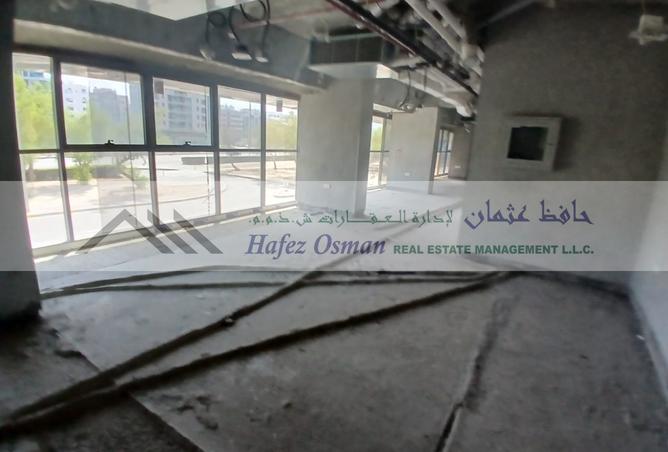 حافظ عثمان لإدارة العقارات ش.ذ.م.م
Hafez Osman REAL ESTATE MANAGEMENT L.L.C.